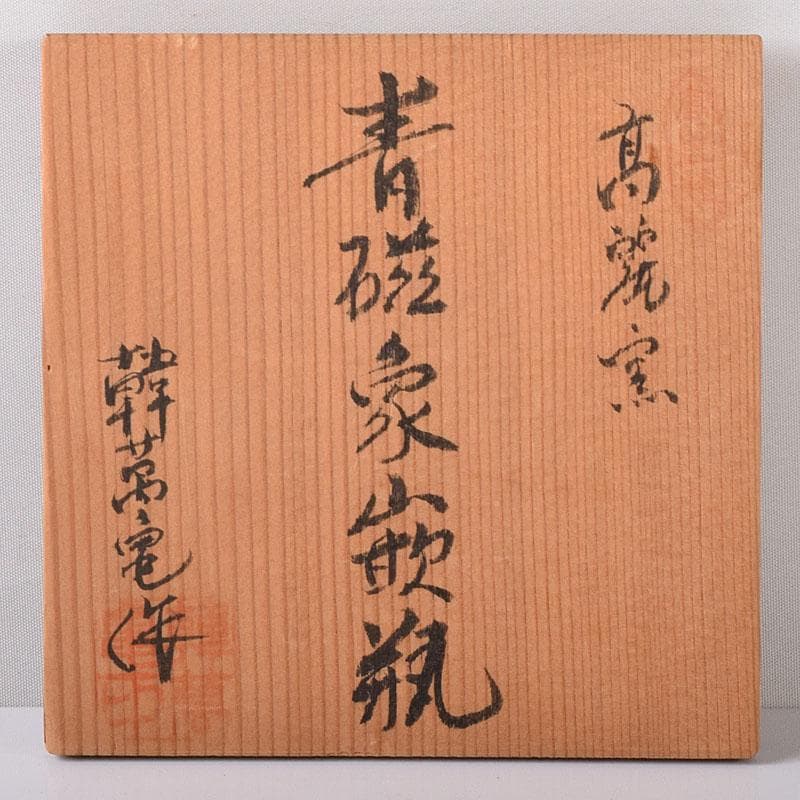 高麗窯
青磁象嵌瓶
韓萬作